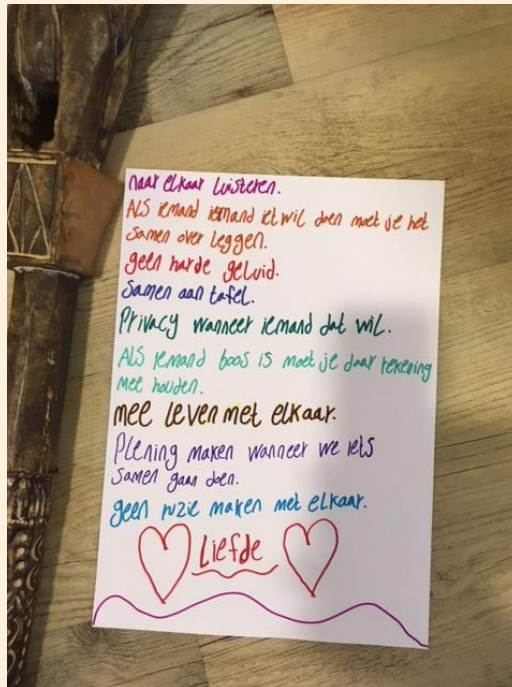 naar elkaar luisteren.
ALS iemand iemand iet wil doen moet je het
samen over leggen.
geen harde geluid.
Samen aan tafel.
Privacy wanneer iemand dat wil.
ALS iemand boos is moet je daar rekening
mee houden.
mee leven met elkaar.
Plening maken wanneer we iets
samen gaan doen.
geen ruzie maken met elkaar.
Liefde